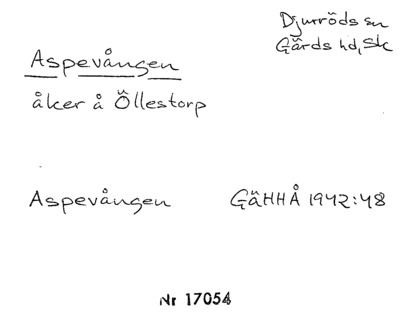 Djurröds sn
Gärds hd, Sk
Aspevången
åker å Öllestorp
Aspevången GäHHÅ 1942:48
Nr 17054